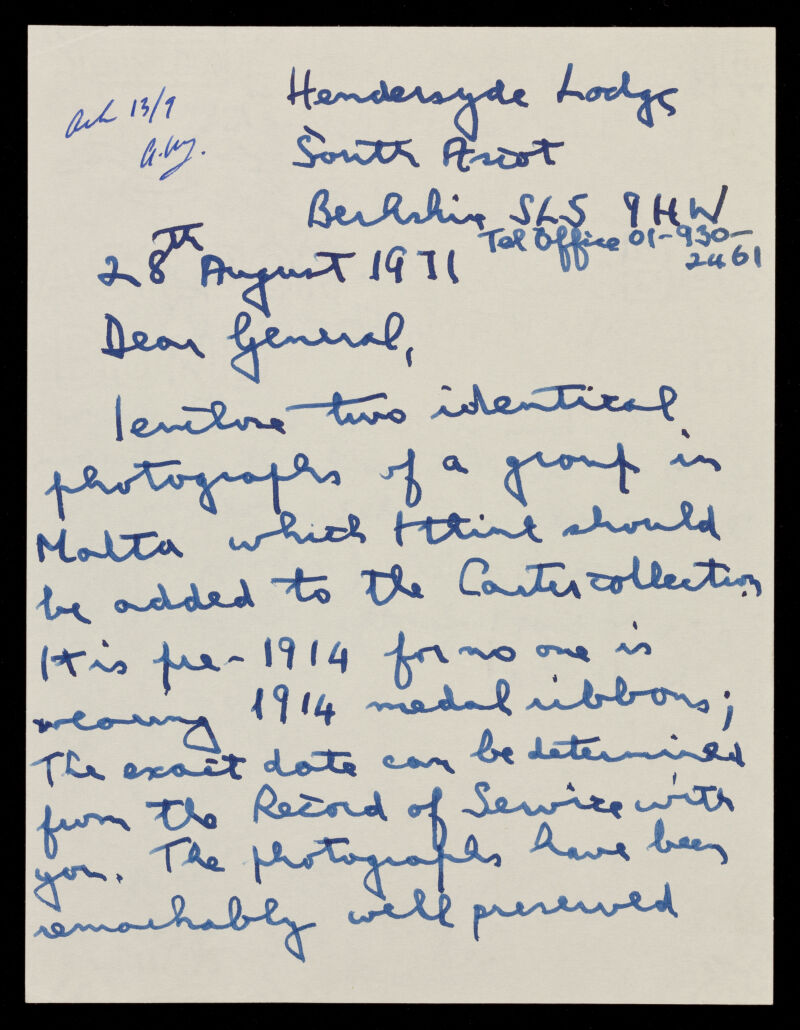 Ack 13/9
Hendersyde Lodge
South Ascot
Berkshire SL5 9HW
Tel Office 01-930-
2461
28th August 1971
Dear General,
I enclose two identical
photographs of a group in
Malta which I think should
be added to the Carter collection
It is pre-1914 for no one is
wearing 1914 medal ribbons;
The exact date can be determined
from the Record of Service with
you. The photographs have been
remarkably well preserved